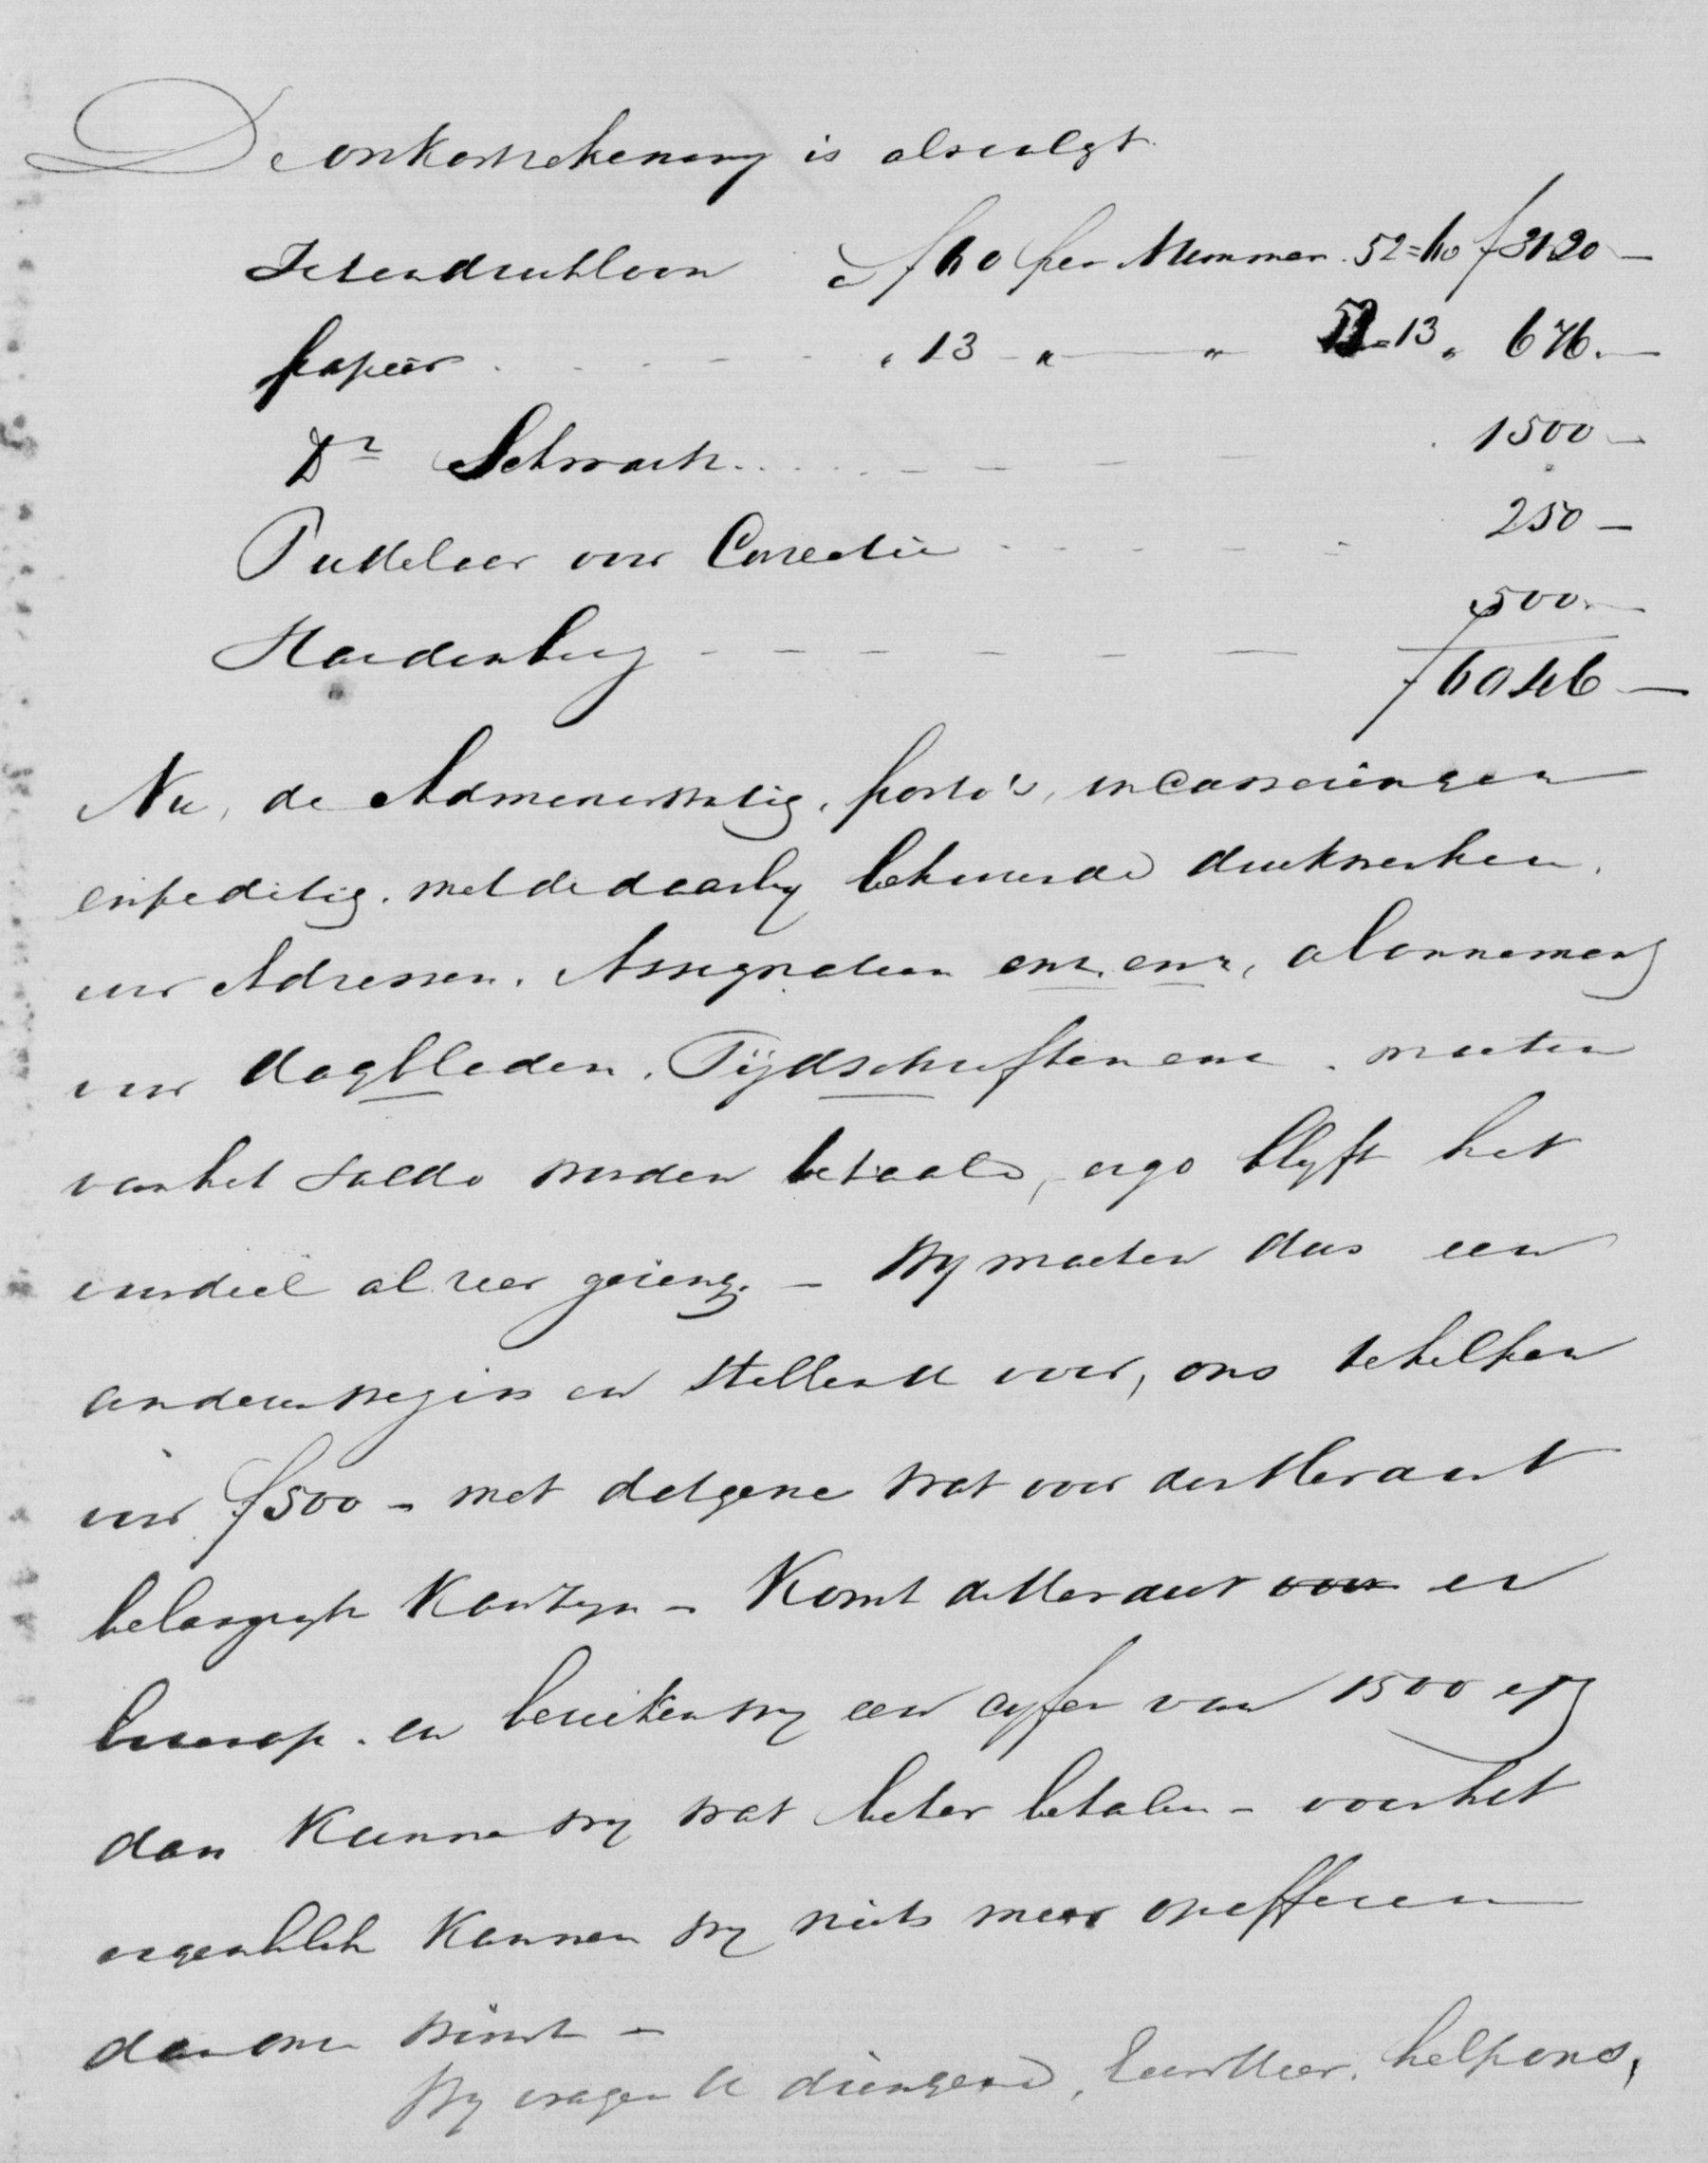 De onkostrekening is alsvolgt.
Zet en drukloon à f 60 per Nummer. 52=60 f 3120 —
papier . - - - „ 13 - „ — „ 52=13 „ 676. —
Dr Schwartz . . . . . - - - - . 1500 —
Puttelaar voor Correctie - - - - - 250 —
Hardenberg - - - - - - 500. —
f 6046 —
Nu, de Administratie, porto's, incasseeringen
expeditie, met de daarby behoorende drukwerken,
voor Adressen, Assignatien enz. enz, abonnement
voor dagbladen, Tijdschriften enz. moeten
van het saldo worden betaald, ergo blyft het
voordeel al zeer gering. — Wy moeten dus een
anderen weg in en stellen U voor, ons te helpen
voor f 500 — met datgene wat voor den Heraut
belangryk kan zyn — Komt de Heraut er
bovenop, en bereiken wy een cyfer van 1500 ex
dan kunnen wy wat beter betalen — voor het
oogenblik kunnen wy niets meer opofferen
dan onze winst —
Wy vragen U dringend, Leeraar, help ons,